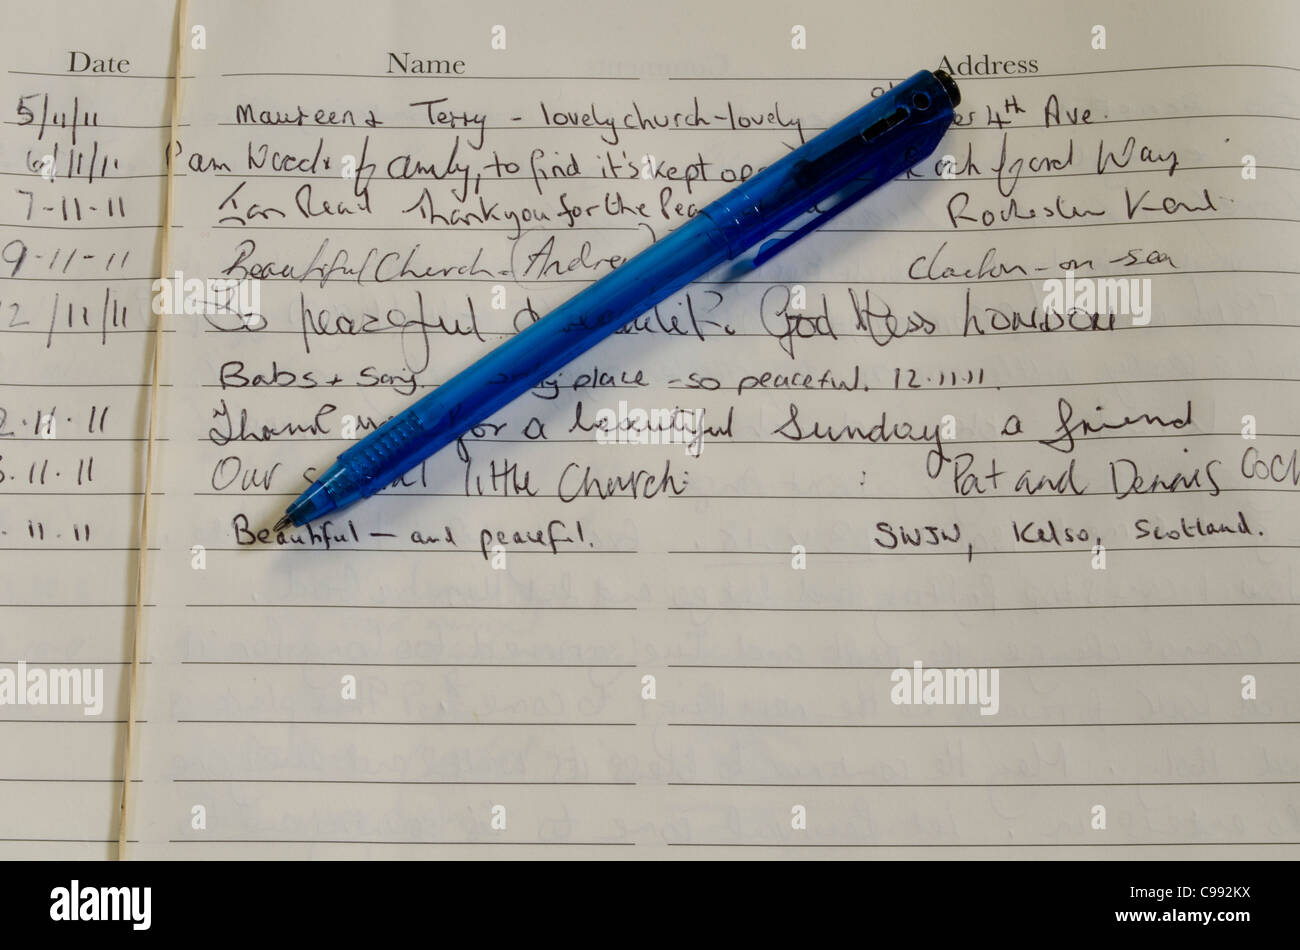 Date Name Address
5/11/11 Maureen & Terry - lovely church - lovely 4th Ave.
6/11/11 Pam Woods & family, to find it's kept Way
7-11-11 Ian Read Thank you for the Rochester Kent.
9-11-11 Beautiful Church. (Andrew Clacton-on-sea
12/11/11 So peaceful & God bless London
Babs + place - so peaceful. 12.11.11.
2.11.11 Thank for a beautiful Sunday a friend
3.11.11 Our little Church. Pat and Dennis
.11.11 Beautiful - and peaceful. SWJW, Kelso, Scotland.
alamy
alamy
a
alamy
Image ID: C992KX
www.alamy.com